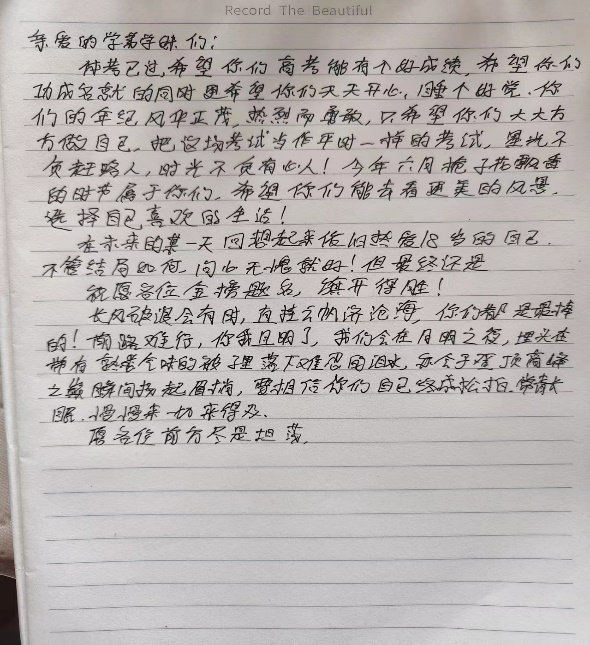 Record The Beautiful
亲爱的学弟学妹们：
体考已过，希望你们高考能有个好成绩，希望你们
功成名就的同时更希望你们天天开心，睡个好觉．你
们的年纪风华正茂，热烈而勇敢，只希望你们大大方
方做自己，把这场考试当作平时一样的考试，星光不
负赶路人，时光不负有心人！今年六月栀子花飘香
的时节属于你们，希望你们能去看更美的风景，
选择自己喜欢的生活！
在未来的某一天回想起来依旧热爱18岁的自己．
不管结局如何问心无愧就好！但最终还是
祝愿各位金榜题名，旗开得胜！
长风破浪会有时，直挂云帆济沧海，你们都是最棒
的！前路难行，你我且明了，我们会在月明之夜，埋头在
带有气味的被子里落下难忍的泪水，亦会于登顶高峰
之巅瞬间扬起眉梢，要相信你们自己终成松柏，常青长
．慢慢来一切来得及．
愿各位前方尽是坦荡．